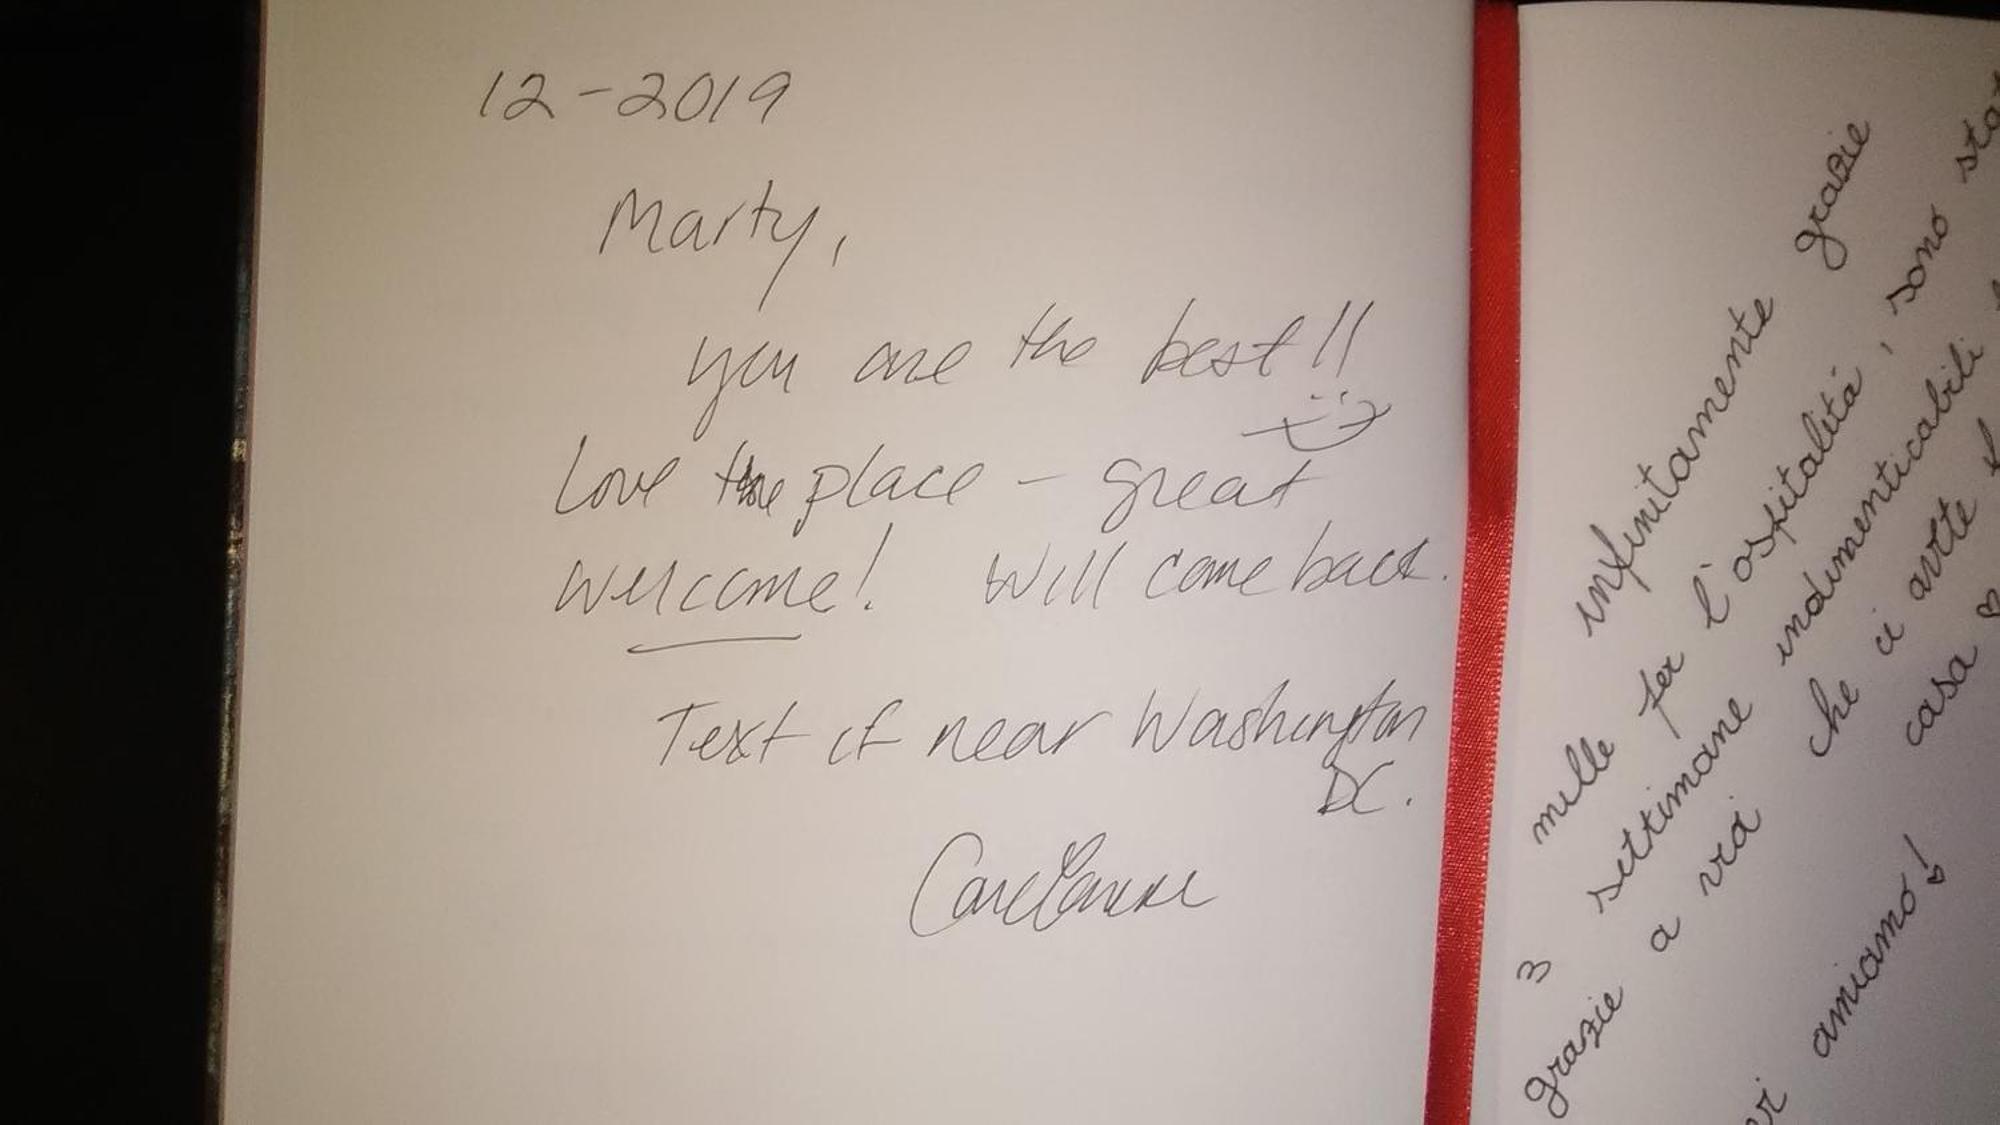 12-2019
Marty,
you are the best!!
Love the place - great
welcome! Will come back.
Text if near Washington
DC.
infinitamente grazie
mille per l'ospitalità, sono
3 settimane indimenticabili
grazie a voi che ci avete
casa ♡
amiamo!